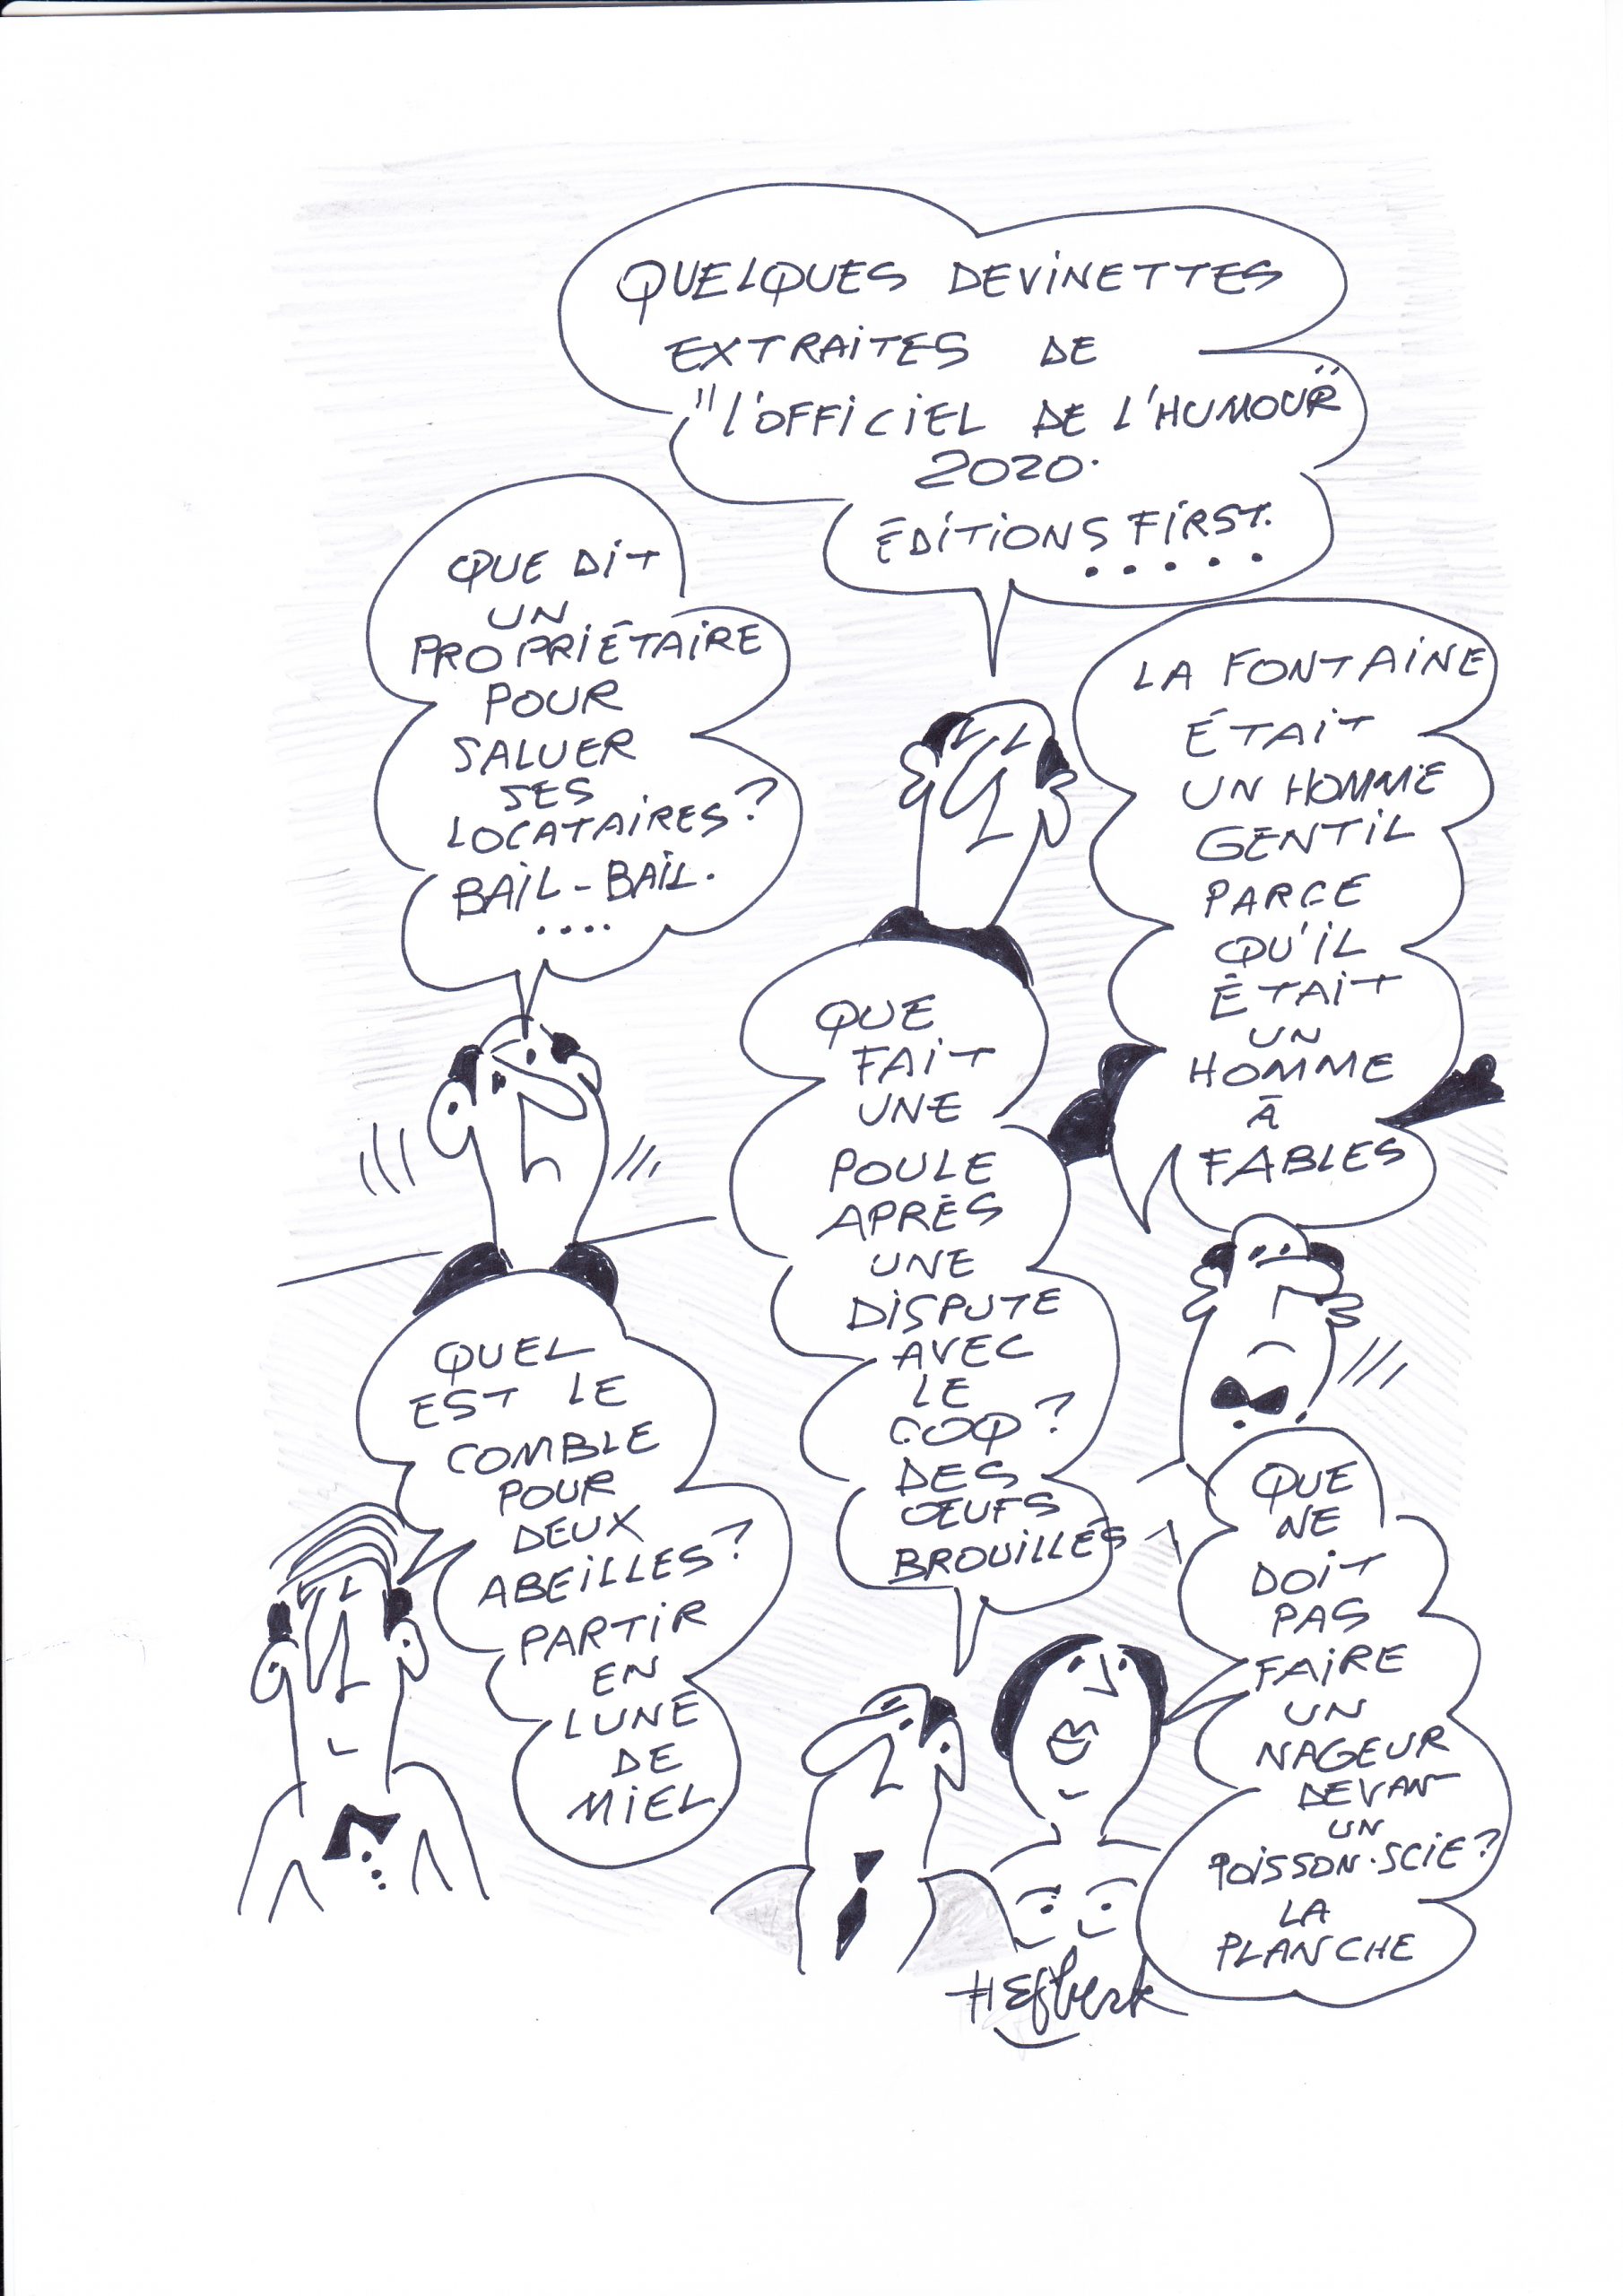 QUELQUES DEVINETTES
EXTRAITES DE
"L'OFFICIEL DE L'HUMOUR"
2020.
ÉDITIONS FIRST.
.....
QUE DIT
UN
PROPRIÉTAIRE
POUR
SALUER
SES
LOCATAIRES?
BAIL-BAIL.
....
LA FONTAINE
ÉTAIT
UN HOMME
GENTIL
PARCE
QU'IL
ÉTAIT
UN
HOMME
À
FABLES
QUE
FAIT
UNE
POULE
APRÈS
UNE
DISPUTE
AVEC
LE
COQ?
DES
ŒUFS
BROUILLÉS
QUEL
EST LE
COMBLE
POUR
DEUX
ABEILLES?
PARTIR
EN
LUNE
DE
MIEL.
QUE
NE
DOIT
PAS
FAIRE
UN
NAGEUR
DEVANT
UN
POISSON-SCIE?
LA
PLANCHE